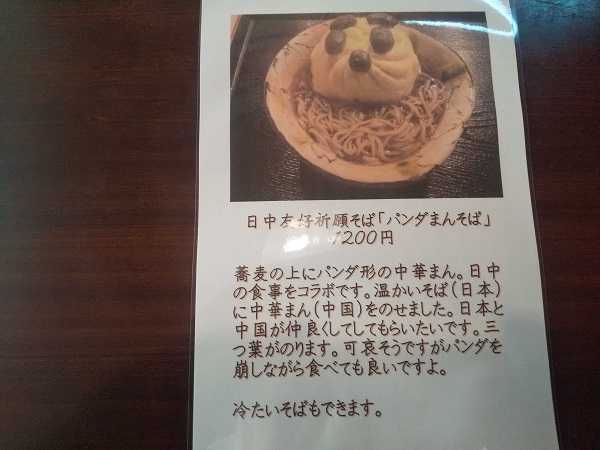 日中友好祈願そば「パンダまんそば」
1200円
蕎麦の上にパンダ形の中華まん。日中
の食事をコラボです。温かいそば(日本)
に中華まん(中国)をのせました。日本と
中国が仲良くしてしてもらいたいです。三
つ葉がのります。可哀そうですがパンダを
崩しながら食べても良いですよ。
冷たいそばもできます。